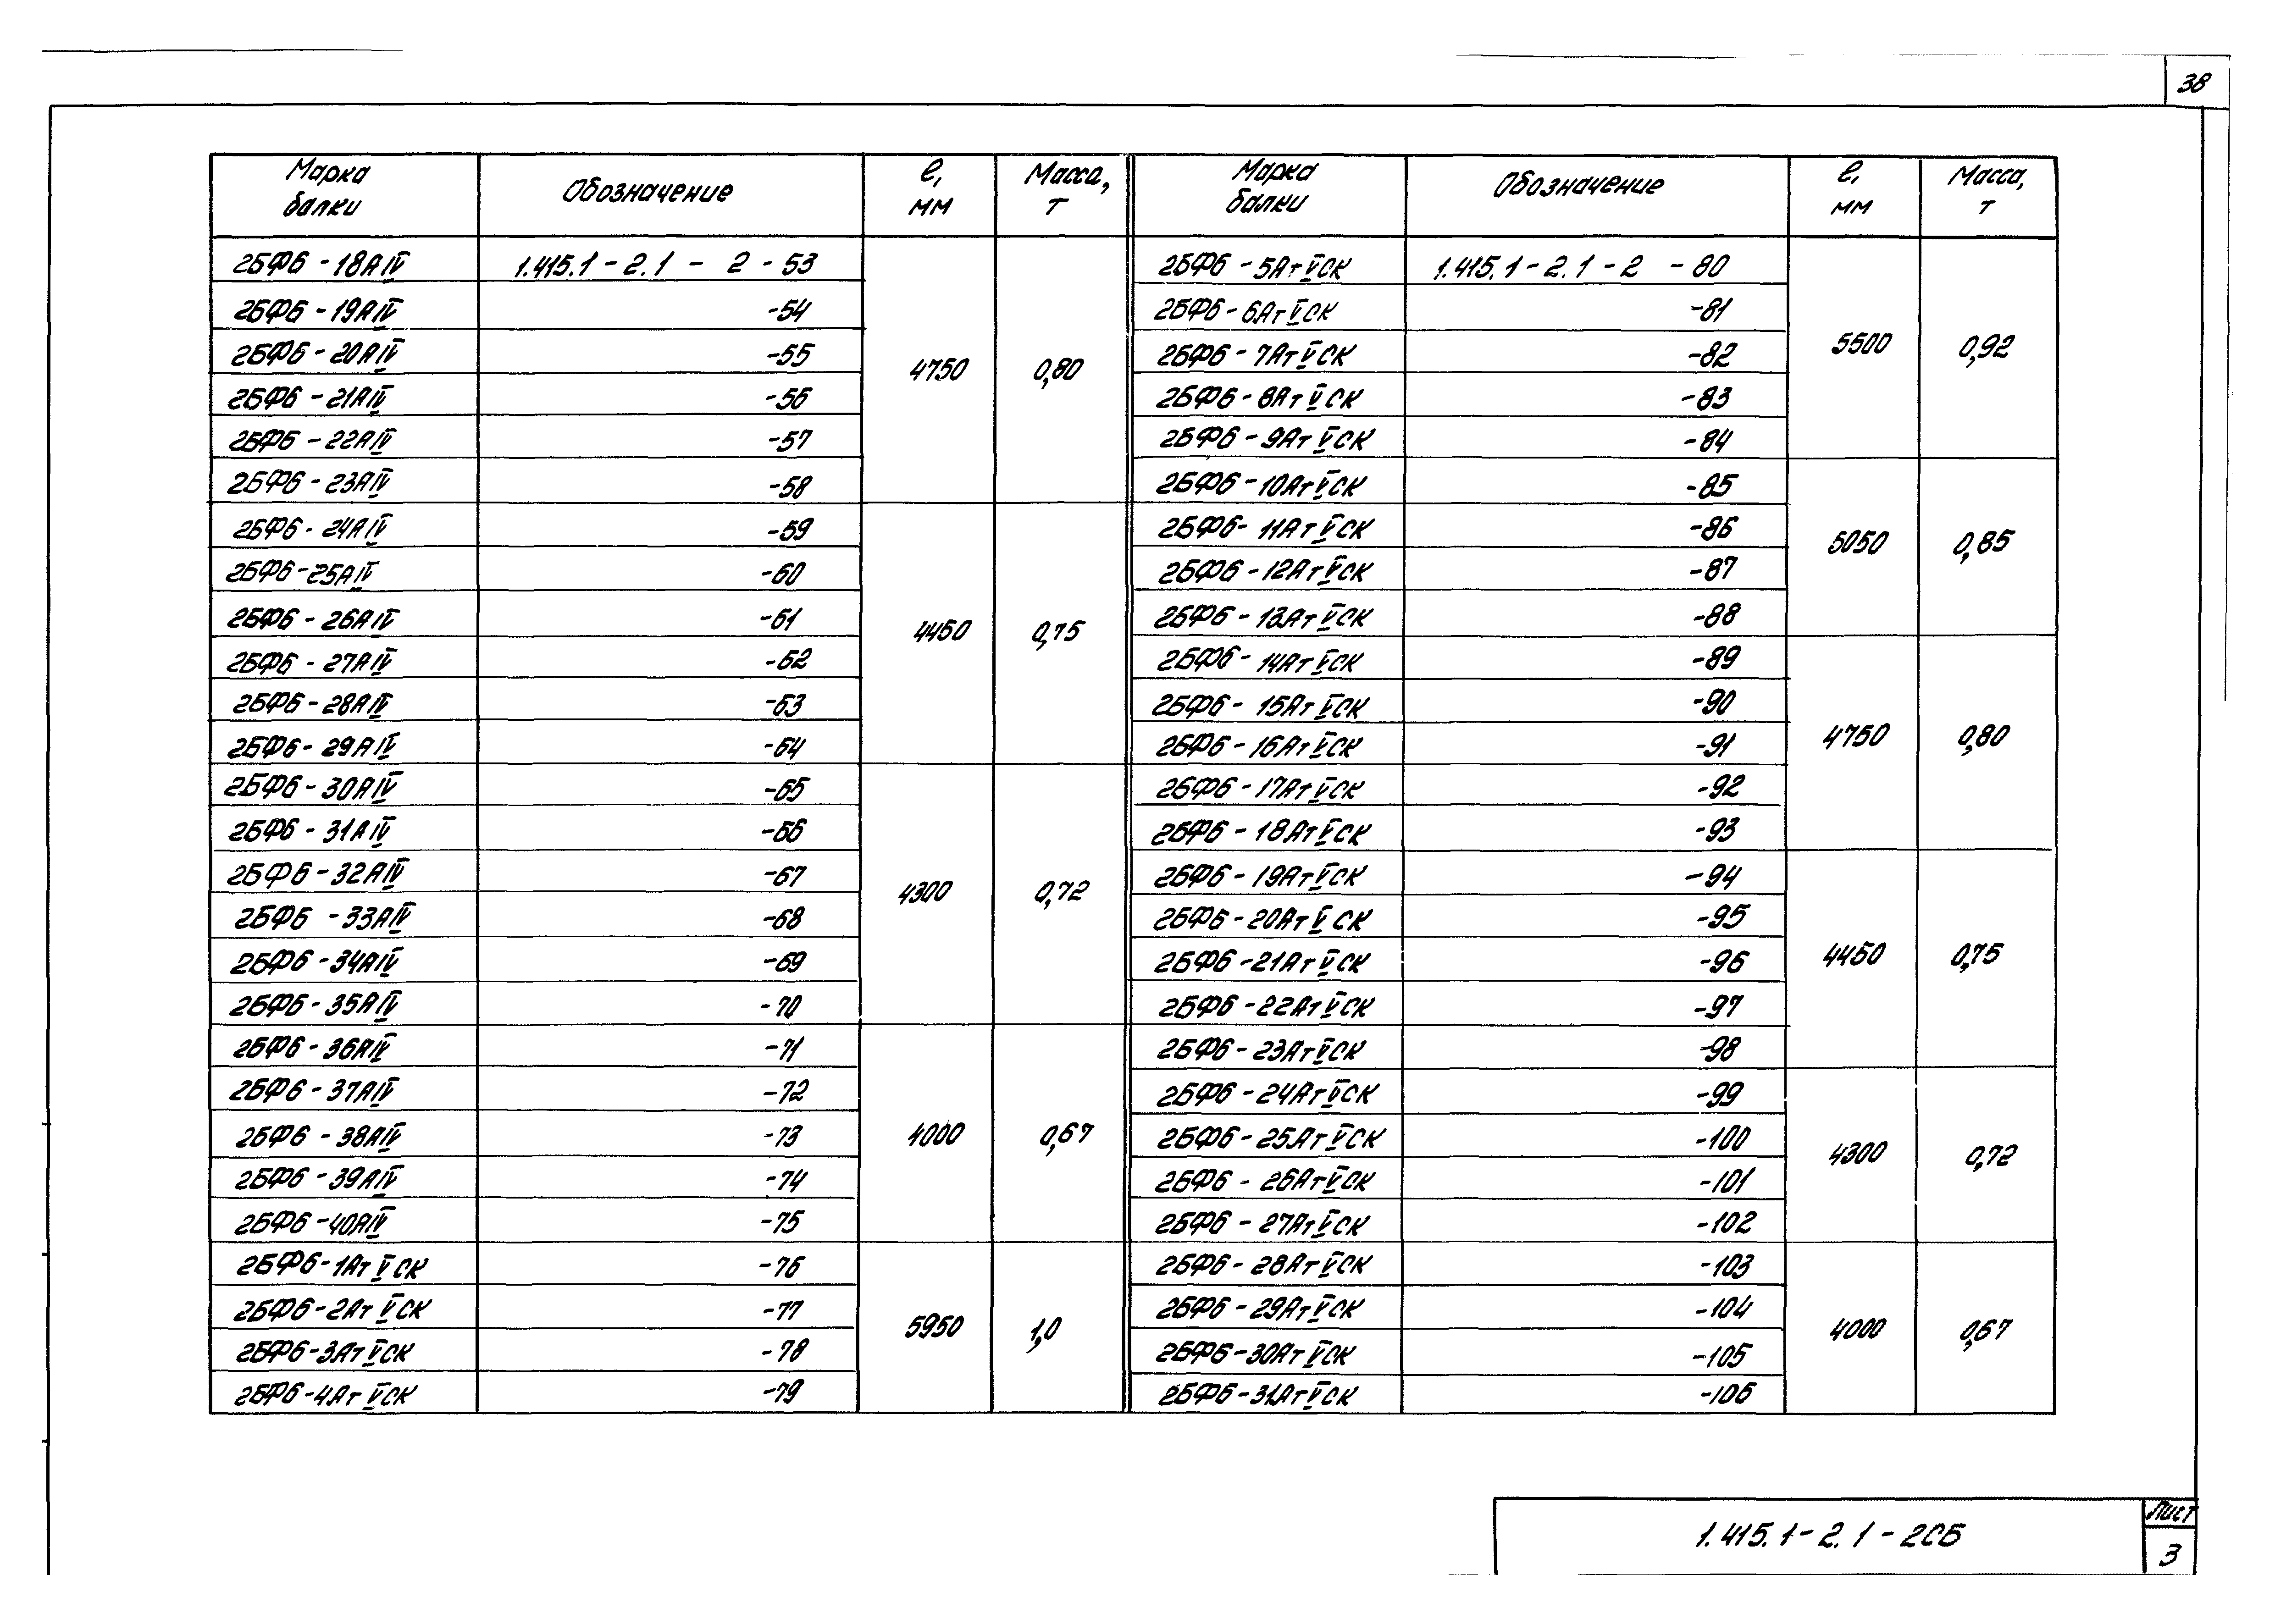 38
Марка балки | Обозначение | ℓ, мм | Масса, т | Марка балки | Обозначение | ℓ, мм | Масса, т
2БФ6-18АIV | 1.415.1-2.1-2-53 | 4750 | 0,80 | 2БФ6-5АтVСК | 1.415.1-2.1-2-80 | 5500 | 0,92
2БФ6-19АIV | -54 | 2БФ6-6АтVСК | -81
2БФ6-20АIV | -55 | 2БФ6-7АтVСК | -82
2БФ6-21АIV | -56 | 2БФ6-8АтVСК | -83
2БФ6-22АIV | -57 | 2БФ6-9АтVСК | -84
2БФ6-23АIV | -58 | 2БФ6-10АтVСК | -85 | 5050 | 0,85
2БФ6-24АIV | -59 | 4450 | 0,75 | 2БФ6-11АтVСК | -86
2БФ6-25АIV | -60 | 2БФ6-12АтVСК | -87
2БФ6-26АIV | -61 | 2БФ6-13АтVСК | -88
2БФ6-27АIV | -62 | 2БФ6-14АтVСК | -89 | 4750 | 0,80
2БФ6-28АIV | -63 | 2БФ6-15АтVСК | -90
2БФ6-29АIV | -64 | 2БФ6-16АтVСК | -91
2БФ6-30АIV | -65 | 4300 | 0,72 | 2БФ6-17АтVСК | -92
2БФ6-31АIV | -66 | 2БФ6-18АтVСК | -93
2БФ6-32АIV | -67 | 2БФ6-19АтVСК | -94 | 4450 | 0,75
2БФ6-33АIV | -68 | 2БФ6-20АтVСК | -95
2БФ6-34АIV | -69 | 2БФ6-21АтVСК | -96
2БФ6-35АIV | -70 | 2БФ6-22АтVСК | -97
2БФ6-36АIV | -71 | 4000 | 0,67 | 2БФ6-23АтVСК | -98
2БФ6-37АIV | -72 | 2БФ6-24АтVСК | -99 | 4300 | 0,72
2БФ6-38АIV | -73 | 2БФ6-25АтVСК | -100
2БФ6-39АIV | -74 | 2БФ6-26АтVСК | -101
2БФ6-40АIV | -75 | 2БФ6-27АтVСК | -102
2БФ6-1АтVСК | -76 | 5950 | 1,0 | 2БФ6-28АтVСК | -103 | 4000 | 0,67
2БФ6-2АтVСК | -77 | 2БФ6-29АтVСК | -104
2БФ6-3АтVСК | -78 | 2БФ6-30АтVСК | -105
2БФ6-4АтVСК | -79 | 2БФ6-31АтVСК | -106
1.415.1-2.1-2СБ
Лист
3